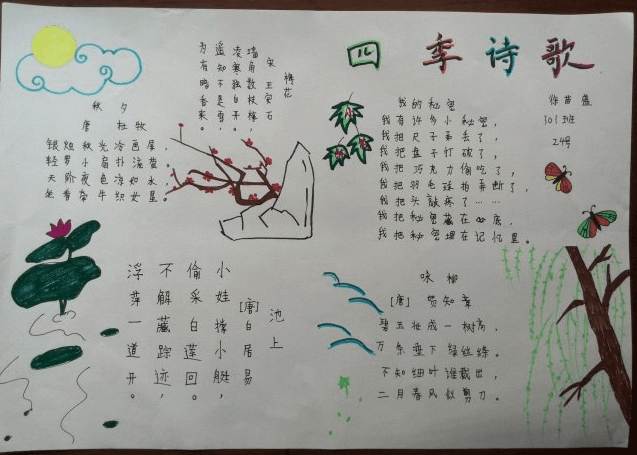 四季诗歌
徐苗盛
301班
24号
秋夕
唐 杜牧
银烛秋光冷画屏，
轻罗小扇扑流萤。
天阶夜色凉如水，
坐看牵牛织女星。
梅花
宋 王安石
墙角数枝梅，
凌寒独自开。
遥知不是雪，
为有暗香来。
我的秘密
我有许多小秘密，
我把尺子弄丢了，
我把盘子打破了，
我把巧克力偷吃了，
我把羽毛球拍弄断了，
我把头敲疼了……
我把秘密藏在心底，
我把秘密埋在记忆里。
池上
[唐]白居易
小娃撑小艇，
偷采白莲回。
不解藏踪迹，
浮萍一道开。
咏柳
[唐] 贺知章
碧玉妆成一树高，
万条垂下绿丝绦。
不知细叶谁裁出，
二月春风似剪刀。